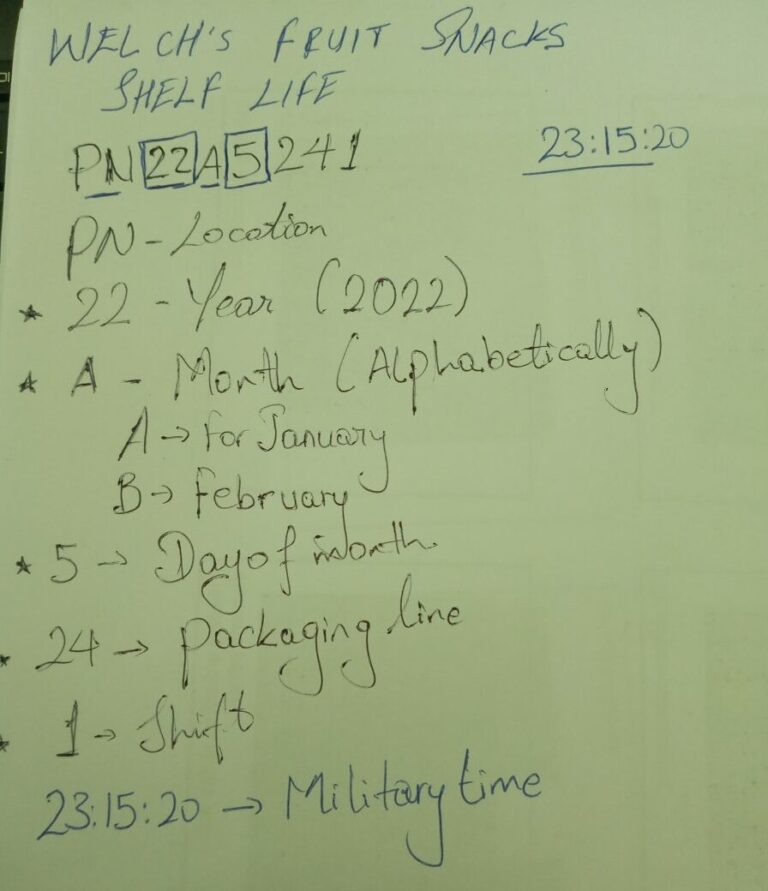 WELCH'S FRUIT SNACKS
SHELF LIFE
PN22A5241 23:15:20
PN - Location
* 22 - Year (2022)
* A - Month (Alphabetically)
A → for January
B → February
* 5 → Day of month
* 24 → Packaging line
* 1 → Shift
23:15:20 → Military time